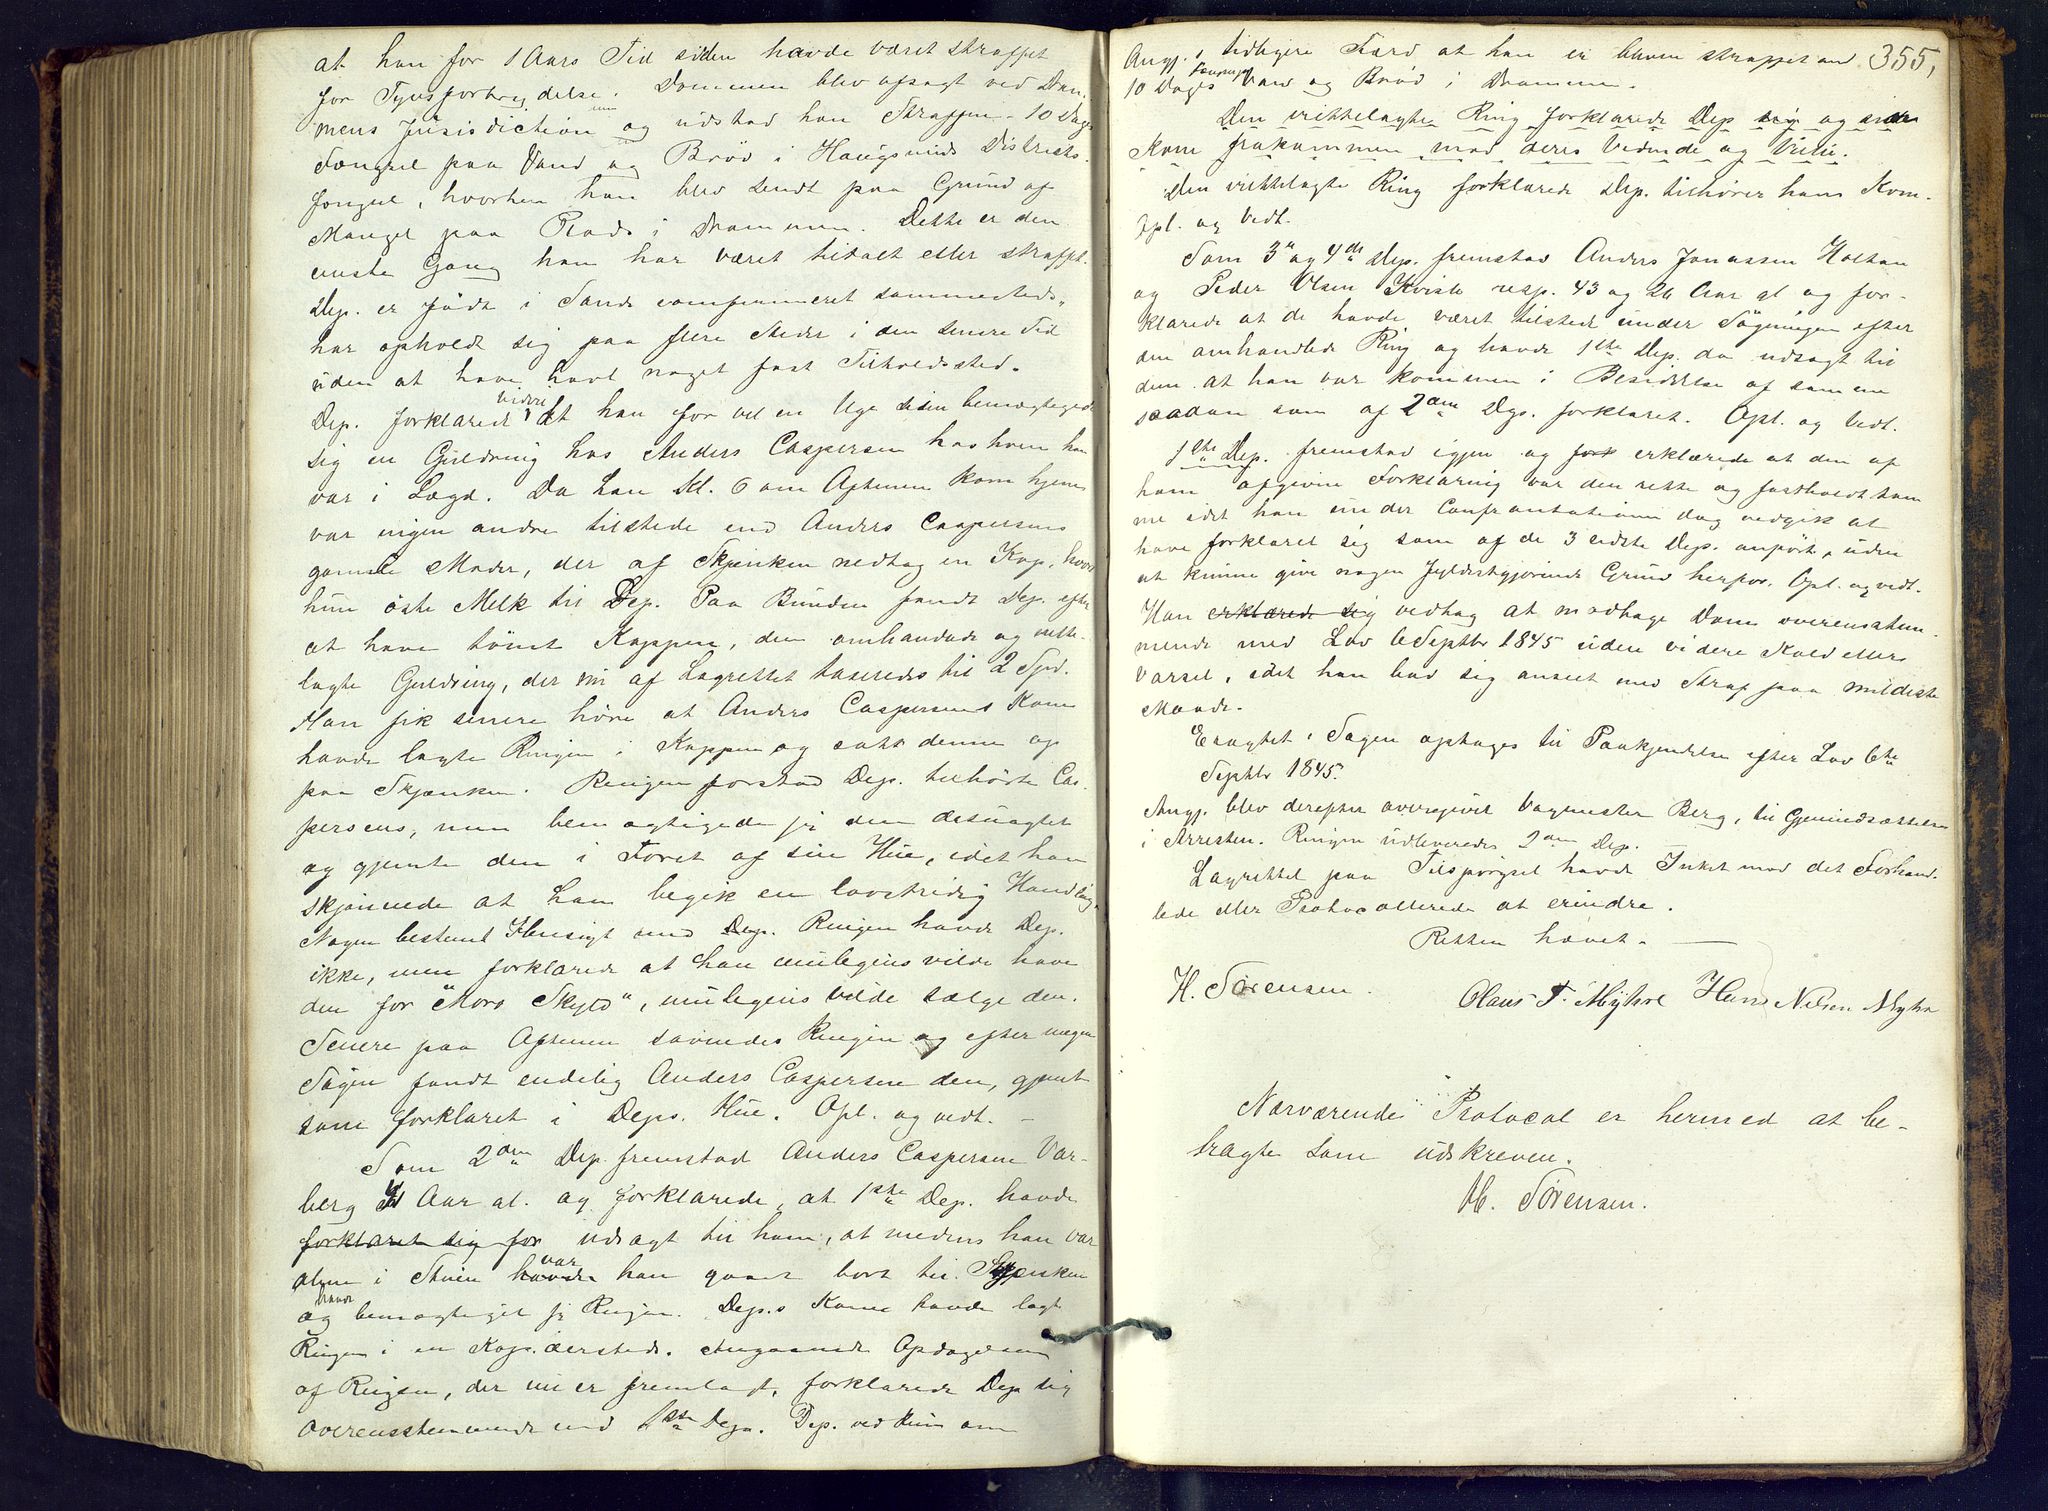 at han for 1 Aars Tid siden havde været straffet
for Tyvsforbrydelse. Dommen blev afsagt ved Dram-
mens Jurisdiction og udstod han Straffen - 10 Dages
Fængsel paa Vand og Brød i Haugsunds Distrikts-
fængsel, hvorhen han blev sendt paa Grund af
Mangel paa Plads i Drammen. Dette er den
eneste Gang han har været tiltalt eller straffet.
Dep. er født i Sande confirmeret sammesteds,
har opholdt sig paa flere Steder i den senere Tid
uden at have havt noget fast Tilholdssted.
Dep. forklarede videre at han for vel en Uge siden bemægtigede
sig en Guldring hos Anders Caspersen hos hvem han
var i Lægd. Da han Kl. 6 om Aftenen kom hjem
var ingen andre tilstede end Anders Caspersens
gamle Moder, der af Skjænken nedtog en Kop, hvori
hun øste Melk til Dep. Paa Bunden fandt Dep. efter
at have tømt Koppen, den omhandlede og rette-
lagte Guldring, der nu af Lagrettet taxeredes til 2 Spd.
Han fik senere høre at Anders Caspersens Kone
havde lagte Ringen i Koppen og satt denne op
paa Skjænken. Ringen forstod Dep. tilhørte Cas-
persens, men bemægtigede sig den desuagtet
og gjemte den i Foret af sin Hue, idet han
skjønnede at han begik en lovstridig Handling.
Nogen bestemt Hensigt med Dep. Ringen havde Dep.
ikke, men forklarede at han muligens vilde have
den for "Mors Skyld", muligens vilde sælge den.
Senere paa Aftenen savnedes Ringen og efter nogen
Søgen fandt endelig Anders Caspersen den, gjemt
som forklaret i Deps. Hue. Opl. og vedt. -
Som 2den Dep. fremstod Anders Caspersen Var-
berg Aar gl. og forklarede, at 1ste Dep. havde
forklaret sig for udsagt til ham, at medens han var
alene i Stuen havde var han gaaet bort til Skjænken
og havde bemægtiget sig Ringen. Dep.s Kone havde lagt
Ringen i en Kop dersteds. Angaaende Opdagelsen
af Ringen, der nu er fremlagt, forklarede Dep sig
overensstemmende med 1ste Dep. Dep. ved kun om
355,
Angj.s tidligere Færd at han er bleven straffet med
10 Dages Fængsel Vand og Brød i Drammen.
Den rettelagte Ring forklarede Dep sig og sin
Kone frakommen mod deres Vidende og Villie.
Den rettelagte Ring forklarede Dep. tilhører hans Kone.
Opl. og Vedt.
Som 3die og 4de Dep. fremstod Anders Jonassen Holtan
og Peder Olsen Kviste resp. 43 og 26 Aar gl og for-
klarede at de havde været tilstede under Søgningen efter
den omhandlede Ring og havde 1ste Dep. da udsagt til
dem at han var kommen i Besiddelse af samme
saadan som af 2den Dep. forklaret. Opl. og Vedt.
1ste Dep. fremstod igjen og fork erklærede at den af
ham afgivne Forklaring var den rette og fastholdt sam
me idet han under Confrontationen dog vedgik at
have forklaret sig som af de 3 sidste Dep. anført, uden
at kunne give nogen fyldestgjørende Grund herfor. Opl. og vedt.
Han erklærede sig vedtog at modtage Dom overensstem-
mende med Lov 6 Septbr 1845 uden videre Kald eller
Varsel, idet han bad sig anseet med Straf paa mildeste
Maade.
Eragtet: Sagen optages til Paakjendelse efter Lov 6te
Septbr 1845.
Angj. blev derefter overgivet Vagmester Berg, til Gjenindsættelse
i Arresten. Ringen udleveredes 2den Dep.
Lagrettet paa Tilspørgsel havde Intet mod det Forhand-
lede eller Protocollerede at erindre.
Retten hævet. -
H. Sørensen. Olaus T. Myhre Hans Nilsen Myhre
Nærværende Protocol er hermed at be-
tragte som udskreven.
H. Sørensen.